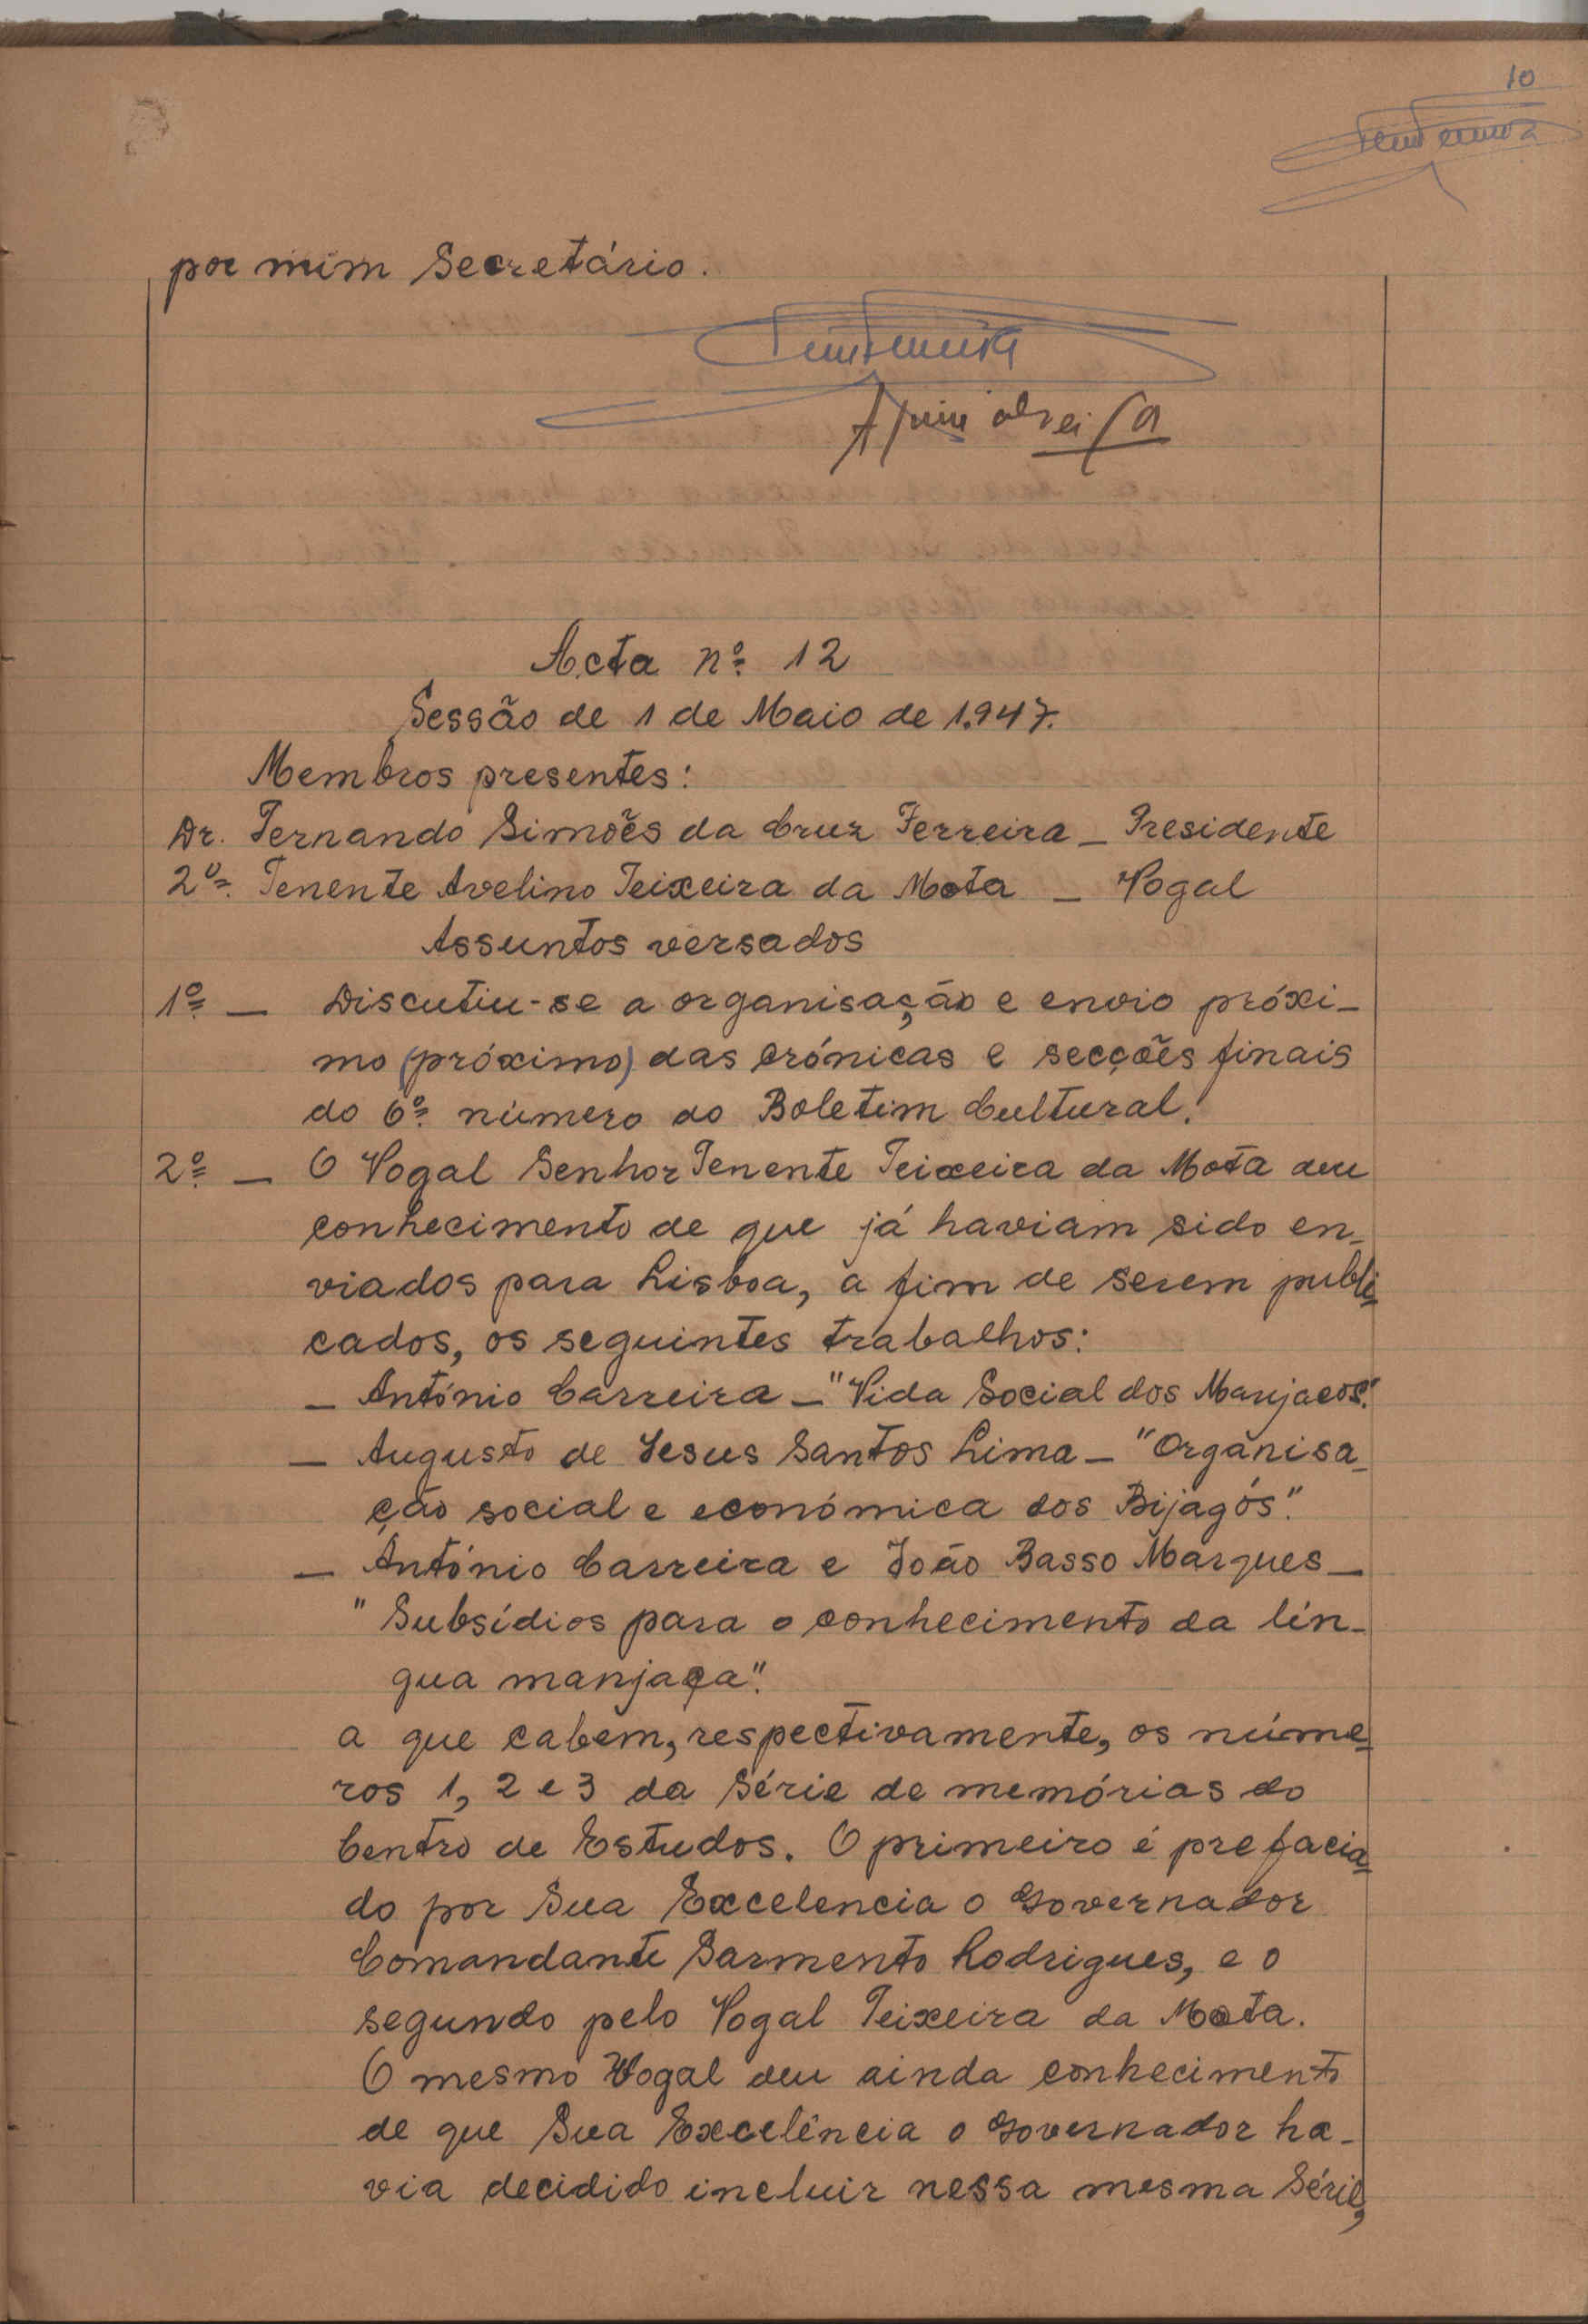 10
por mim Secretário.
Acta nº 12
Sessão de 1 de Maio de 1.947.
Membros presentes:
Dr. Fernando Simões da Cruz Ferreira _ Presidente
2º Tenente Avelino Teixeira da Mota _ Vogal
Assuntos versados
1º _ Discutiu-se a organisação e envio próxi-
mo (próximo) das crónicas e secções finais
do 6º número do Boletim Cultural.
2º _ O Vogal Senhor Tenente Teixeira da Mota deu
conhecimento de que já haviam sido en-
viados para Lisboa, a fim de serem publi-
cados, os seguintes trabalhos:
_ António Carreira _ "Vida Social dos Manjacos".
_ Augusto de Jesus Santos Lima _ "Organisa-
ção social e económica dos Bijagós".
_ António Carreira e João Basso Marques _
"Subsídios para o conhecimento da lín-
gua manjaca".
a que cabem, respectivamente, os núme-
ros 1, 2 e 3 da Série de memórias do
Centro de Estudos. O primeiro é prefacia-
do por Sua Excelencia o Governador
Comandante Sarmento Rodrigues, e o
segundo pelo Vogal Teixeira da Mota.
O mesmo Vogal deu ainda conhecimento
de que Sua Excelência o Governador ha-
via decidido incluir nessa mesma Série,